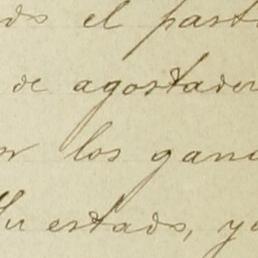 el part
de agostader
los gana
Su estado, y